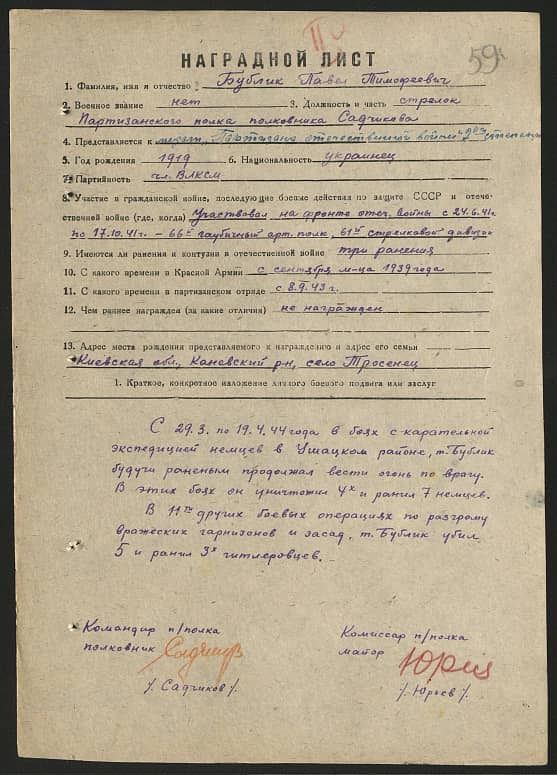 II
59
НАГРАДНОЙ ЛИСТ
1. Фамилия, имя и отчество Бублик Павел Тимофеевич
2. Военное звание нет 3. Должность и часть стрелок
Партизанского полка полковника Садчикова
4. Представляется к медали "Партизана отечественной войны" 2ой степени
5. Год рождения 1919 6. Национальность украинец
7. Партийность чл. ВЛКСМ
8. Участие в гражданской войне, последующие боевые действия по защите СССР и отече-
ственной войне (где, когда) Участвовал на фронте отеч. войны с 24.6.41г
по 17.10.41г - 66й гаубичный арт. полк, 61й стрелковой дивизии
9. Имеются ли ранения и контузии в отечественной войне три ранения
10. С какого времени в Красной Армии с сентября м-ца 1939 года
11. С какого времени в партизанском отряде с 8.9.43 г.
12. Чем раннее награждся (за какие отличия) не награжден
13. Адрес места рождения представляемого к награждению и адрес его семьи
Киевская обл., Каневский р-н, село Тросенец
1. Краткое, конкретное изложение личного боевого подвига или заслуг
С 29.3. по 19.4.44 года в боях с карательной
экспедицией немцев в Ушацком районе, т. Бублик
будучи раненым продолжал вести огонь по врагу.
В этих боях он уничтожил 4х и ранил 7 немцев.
В 11ти других боевых операциях по разгрому
вражеских гарнизонов и засад, т. Бублик убил
5 и ранил 3х гитлеровцев.
Командир п/полка Комиссар п/полка
полковник Садчиков майор Юрьев
/. Садчиков /. /. Юрьев /.